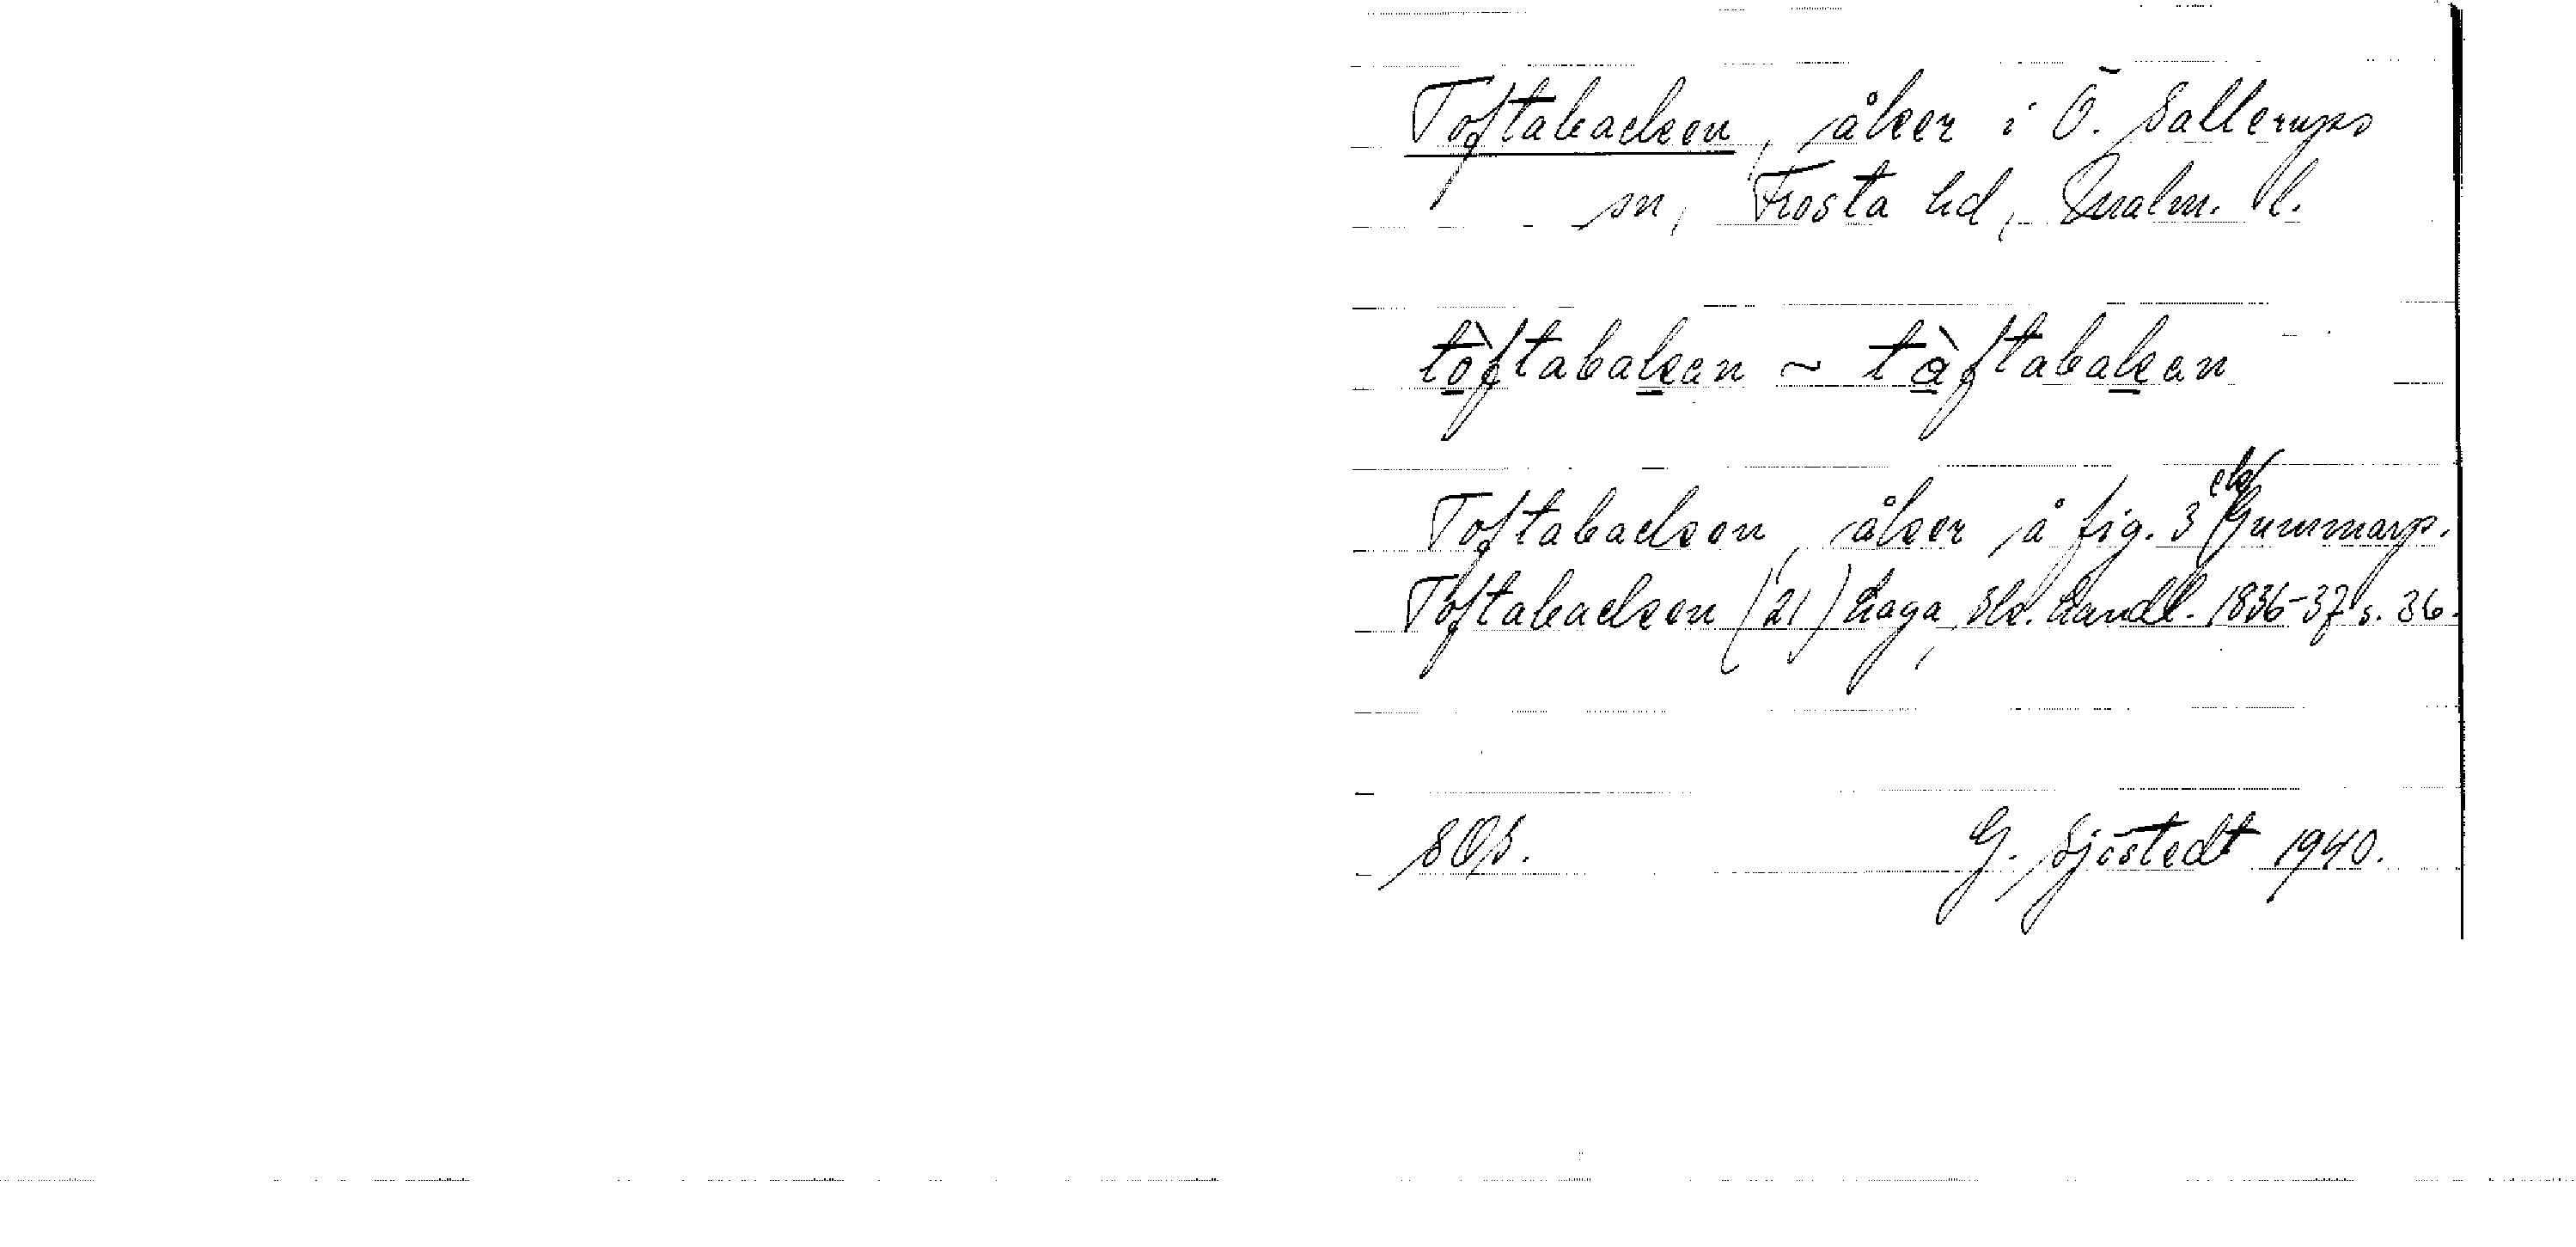 Toftabacken, åker i Ö. Sallerups
sn, Frosta hd, Malm. l.
tòftabakan ~ tàftabakan
Toftabacken, åker å fig. 3 Gummarp.
Toftabacken (21) haga, sk. handl. 1836-37 s. 36.
SOS.
G. Sjöstedt 1940.